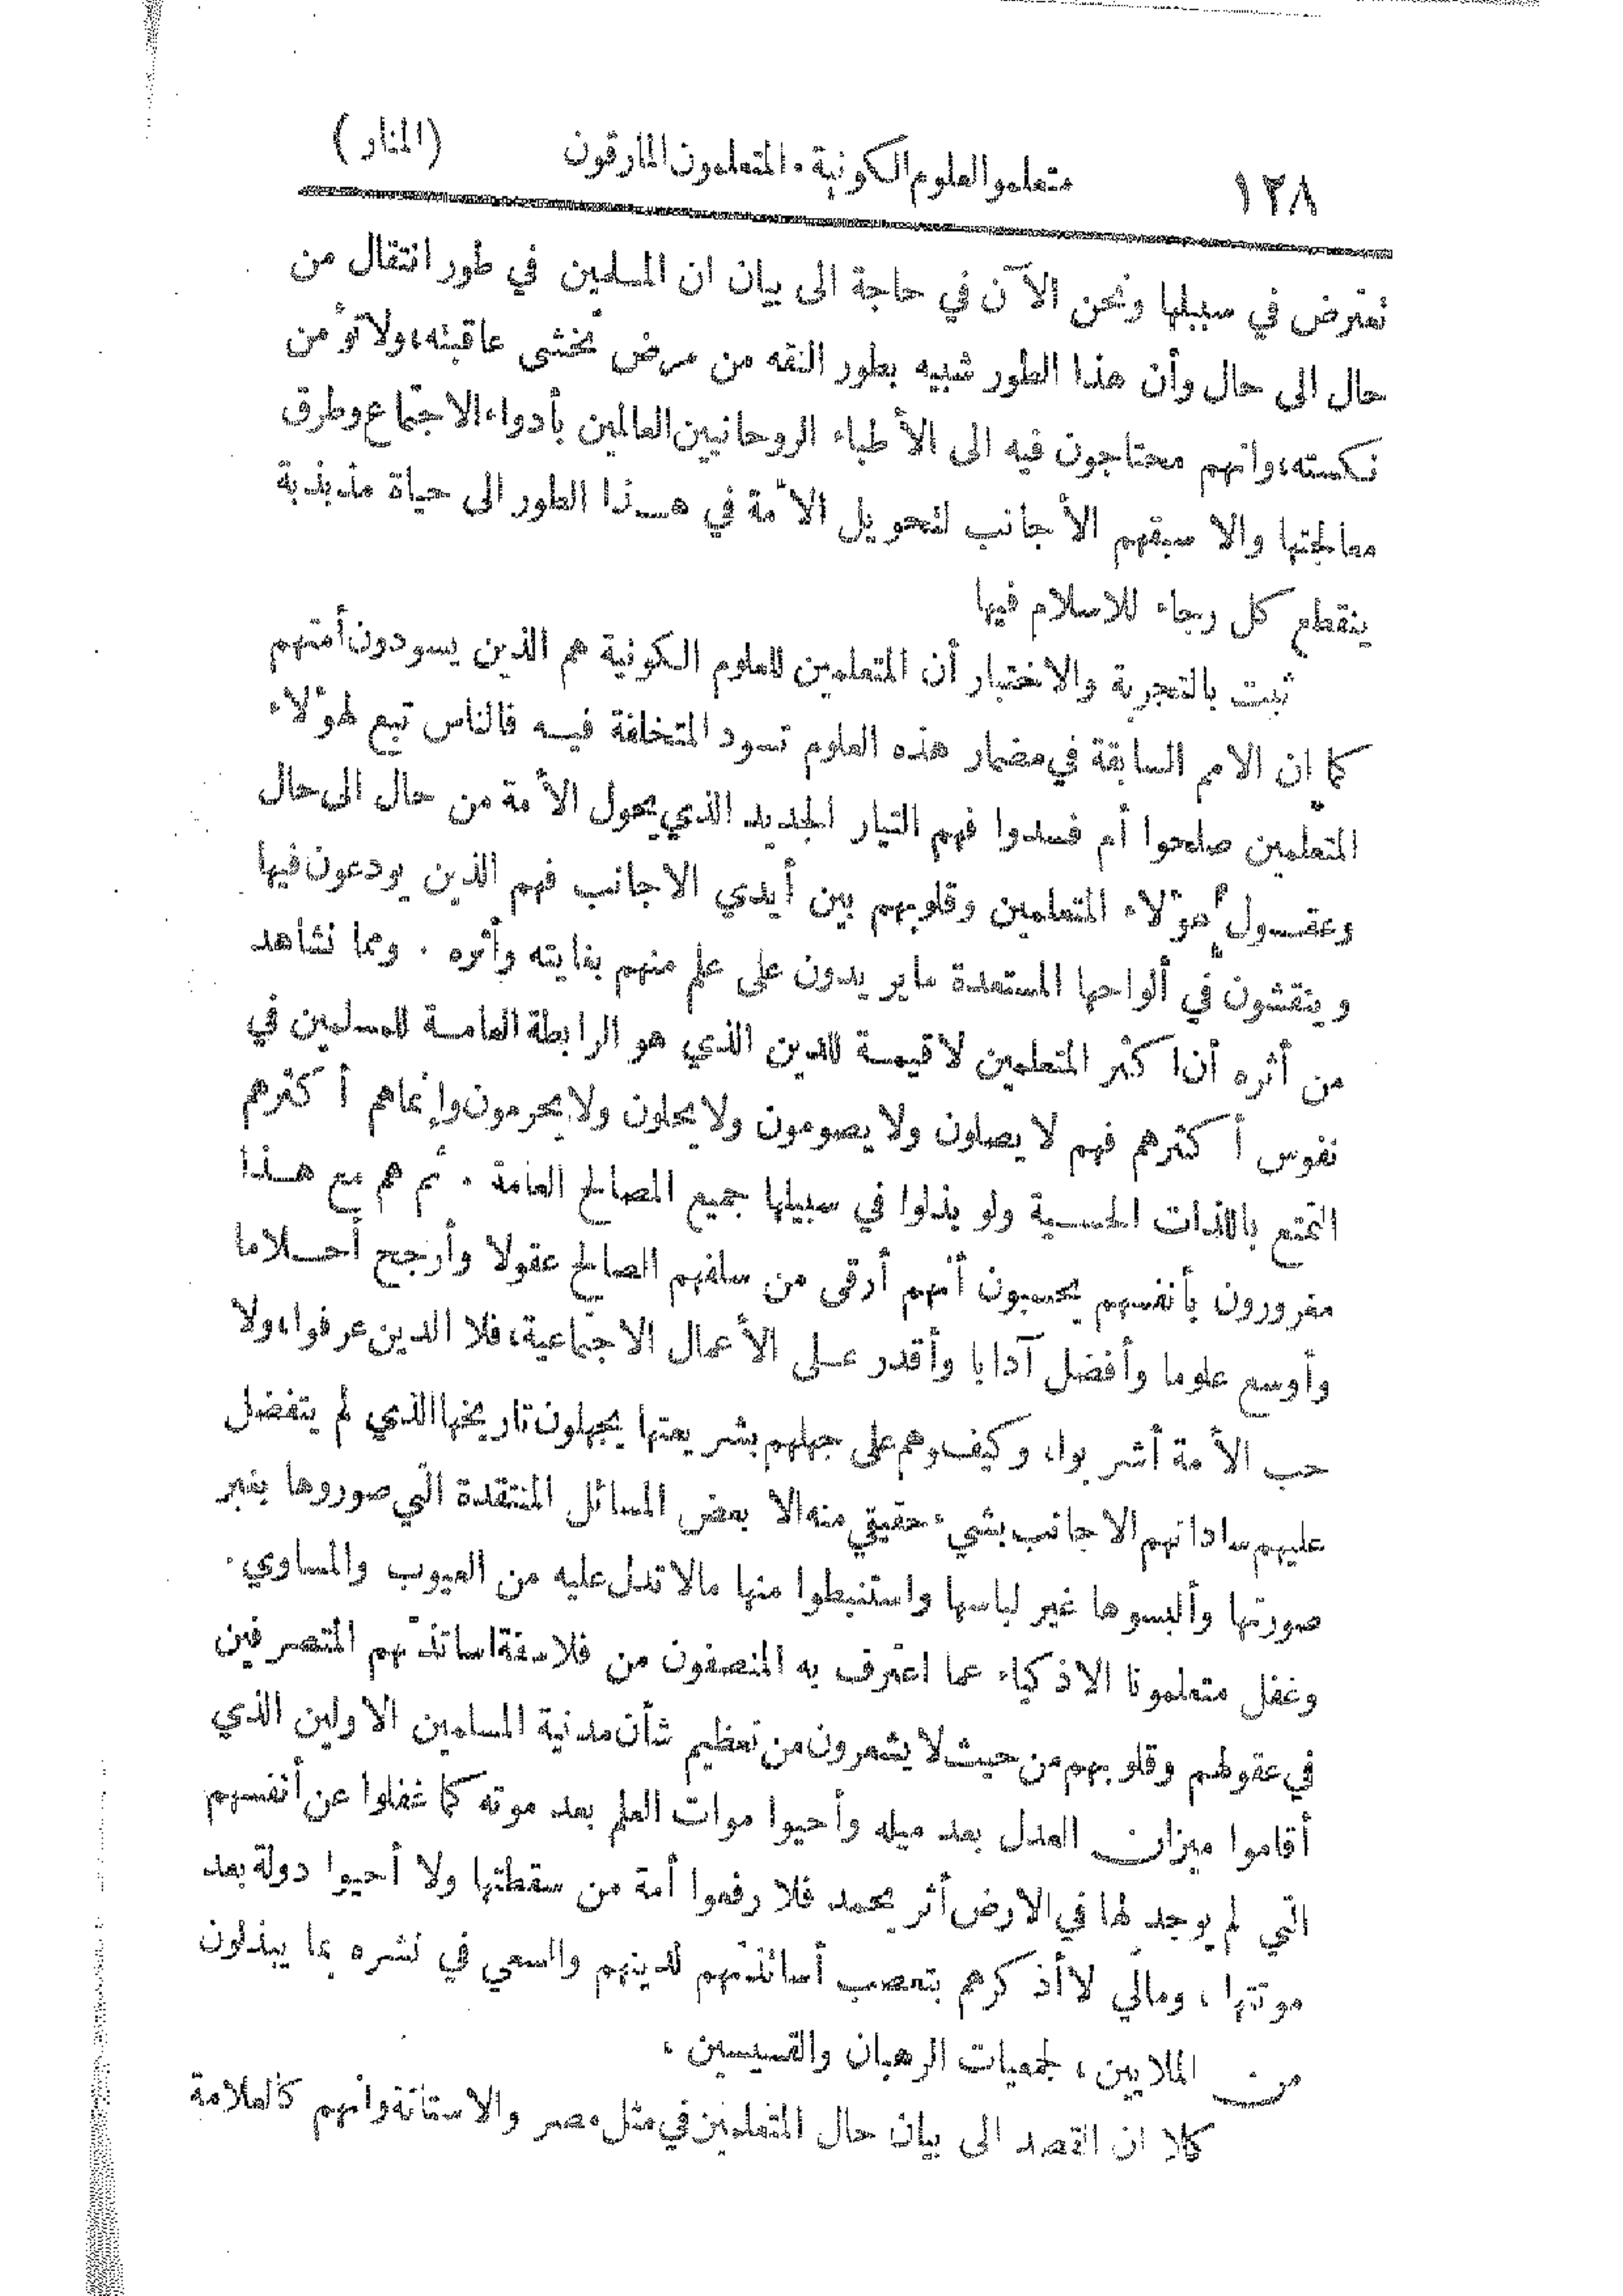 ١٢٨ متعلمو العلوم الكونية. المتعلمون المارقون (المنار)
تعترض في سبيلها ونحن الآن في حاجة الى بيان ان المسلمين في طور انتقال من
حال الى حال وأن هذا الطور شبيه بطور النقه من مرض تخشى عاقبته، ولا تؤمن
نكسته، وانهم محتاجون فيه الى الأطباء الروحانيين العالمين بأدواء الاجتماع وطرق
معالجتها والا سبقهم الأجانب لتحويل الأمة في هـذا الطور الى حياة مذبذبة
ينقطع كل رجاء للاسلام فيها
ثبت بالتجربة والاختبار أن المتعلمين للعلوم الكونية هم الذين يسودون أمتهم
كما ان الامم السابقة في مضمار هذه العلوم تسود المتخلفة فيـه فالناس تبع لهؤلاء
المتعلمين صلحوا أم فسدوا فهم التيار الجديد الذي يحول الأمة من حال الى حال
وعقـول هؤلاء المتعلمين وقلوبهم بين أيدي الاجانب فهم الذين يودعون فيها
وينقشون في ألواحها المستعدة ما يريدون على علم منهم بغايته وأثره . ومما نشاهد
من أثره أن اكثر المتعلمين لا قيمـة للدين الذي هو الرابطة العامـة للمسلمين في
نفوس أكثرهم فهم لا يصلون ولا يصومون ولا يحلون ولا يحرمون وإنما هم أكثرهم
التمتع باللذات الحسـية ولو بذلوا في سبيلها جميع المصالح العامة . ثم هم مع هـذا
مغرورون بأنفسهم يحسبون أنهم أرقى من سلفهم الصالح عقولا وأرجح أحـلاما
وأوسع علوما وأفضل آدابا وأقدر عـلى الأعمال الاجتماعية، فلا الدين عرفوا، ولا
حب الأمة أشربوا، وكيف وهم على جهلهم بشريعتها يجهلون تاريخها الذي لم يتفضل
عليهم ساداتهم الاجانب بشيء حقيقي منه الا بعض المسائل المنتقدة التي صوروها بغير
صورتها وألبسوها غير لباسها واستنبطوا منها مالا تدل عليه من العيوب والمساوي .
وغفل متعلمونا الاذكياء عما اعترف به المنصفون من فلاسفة اساتذتهم المتصرفين
في عقولهم وقلوبهم من حيث لا يشعرون من تعظيم شأن مدنية المسلمين الاولين الذي
أقاموا ميزان العدل بعد ميله وأحيوا موات العلم بعد موته كما غفلوا عن أنفسهم
التي لم يوجد لها في الارض أثر يحمد فلا رفعوا أمة من سقطتها ولا أحيوا دولة بعد
موتتها ، ومالي لا أذكرهم بتعصب أساتذتهم لدينهم والسعي في نشره بما يبذلون
من الملايين ، لجمعيات الرهبان والقسيسين ،
كلا ان القصد الى بيان حال المتعلمين في مثل مصر والاستانة وانهم كالعلامة